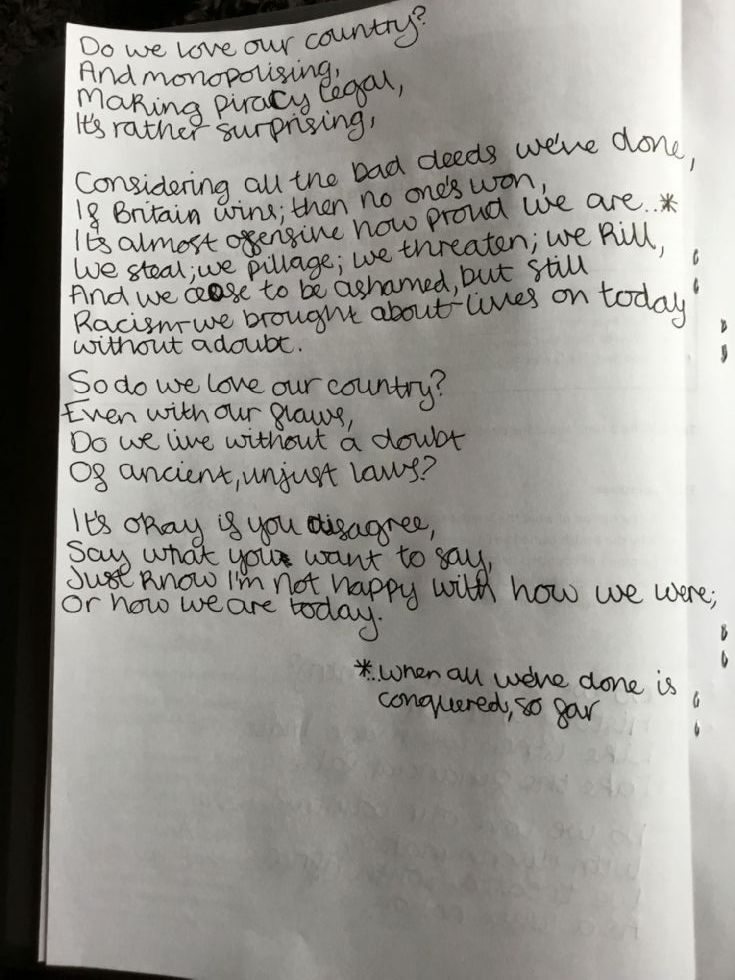 Do we love our country?
And monopolising,
Making piracy legal,
It's rather surprising,
Considering all the bad deeds we've done,
If Britain wins; then no one's won,
It's almost offensive how proud we are..*
We steal; we pillage; we threaten; we kill,
And we cease to be ashamed, but still
Racism-we brought about-lives on today
without a doubt.
So do we love our country?
Even with our flaws,
Do we live without a doubt
Of ancient, unjust laws?
It's okay if you disagree,
Say what you want to say,
Just know I'm not happy with how we were;
Or how we are today.
*..when all we've done is
conquered, so far